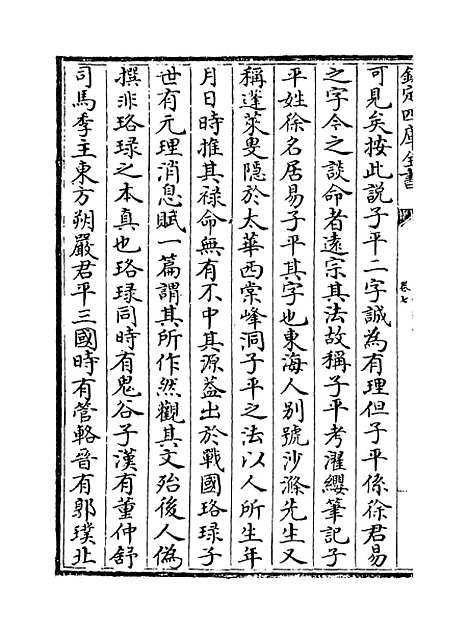 欽定四庫全書
卷七
可見矣按此說子平二字誠為有理但子平係徐君易
之字今之談命者遠宗其法故稱子平考濯纓筆記子
平姓徐名居易子平其字也東海人別號沙滌先生又
稱蓬萊叟隱於太華西棠峰洞子平之法以人所生年
月日時推其祿命無有不中其源葢出於戰國珞琭子
世有元理消息賦一篇謂其所作然觀其文殆後人偽
撰非珞琭之本真也珞琭同時有鬼谷子漢有董仲舒
司馬季主東方朔嚴君平三國時有管輅晉有郭璞北